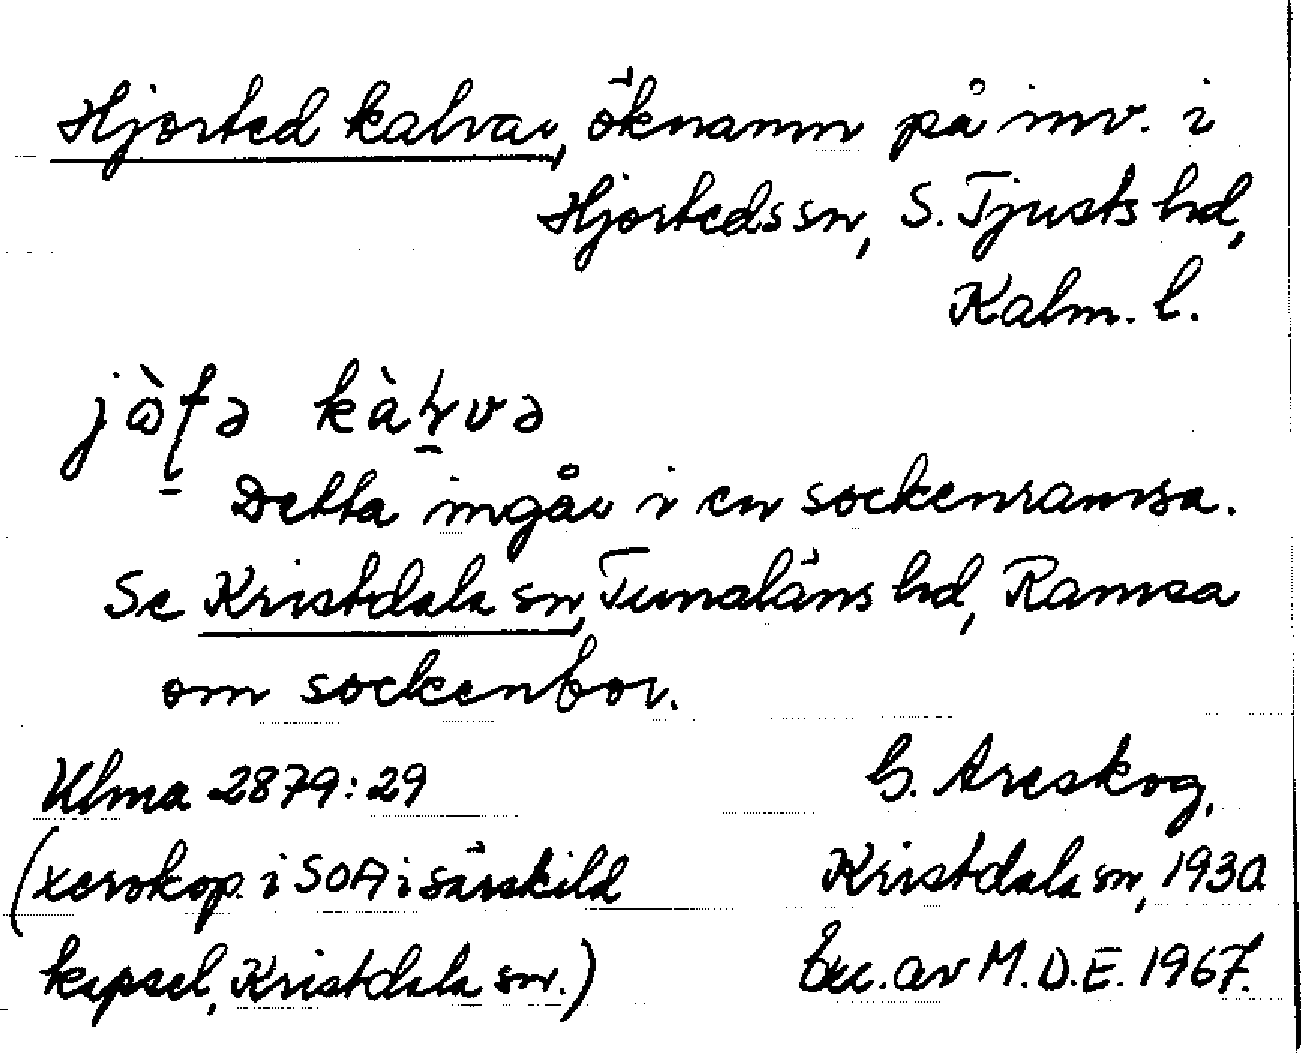 Hjorted kalvar, öknamn på inv. i
Hjorteds sn, S. Tjusts hd,
Kalm. l.
kàḷvə
Detta ingår i en sockenramsa.
Se Kristdala sn, Tunaläns hd, Ramsa
om sockenbor.
Ulma 2879:29
G. Areskog,
(xerokop. i SOA i särskild
Kristdala sn, 1930
kapsel, Kristdala sn.)
Exc. av M.D.E. 1967.